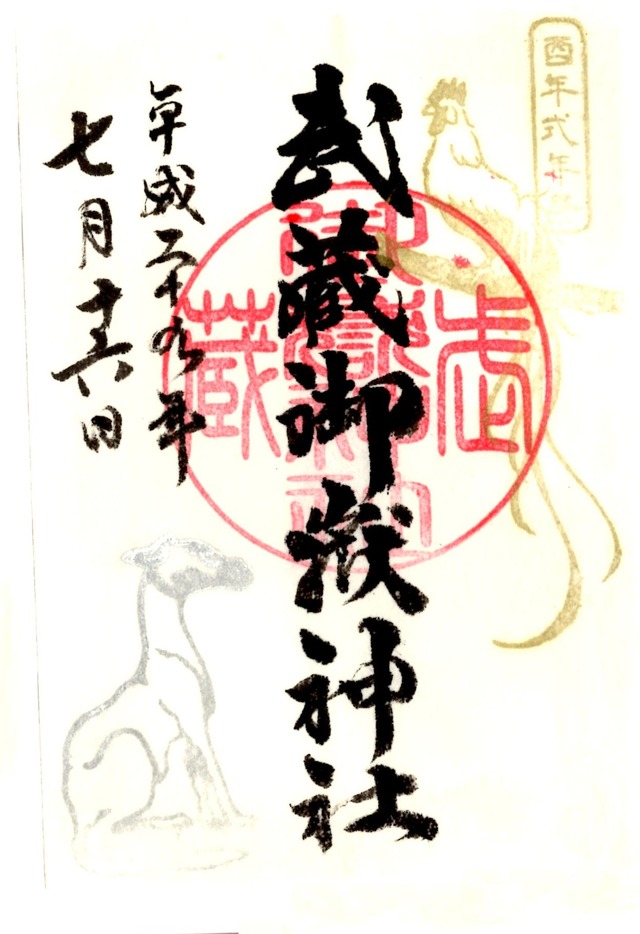 酉年式年祭
武蔵御嶽神社
武蔵
平成二十九年
七月十六日